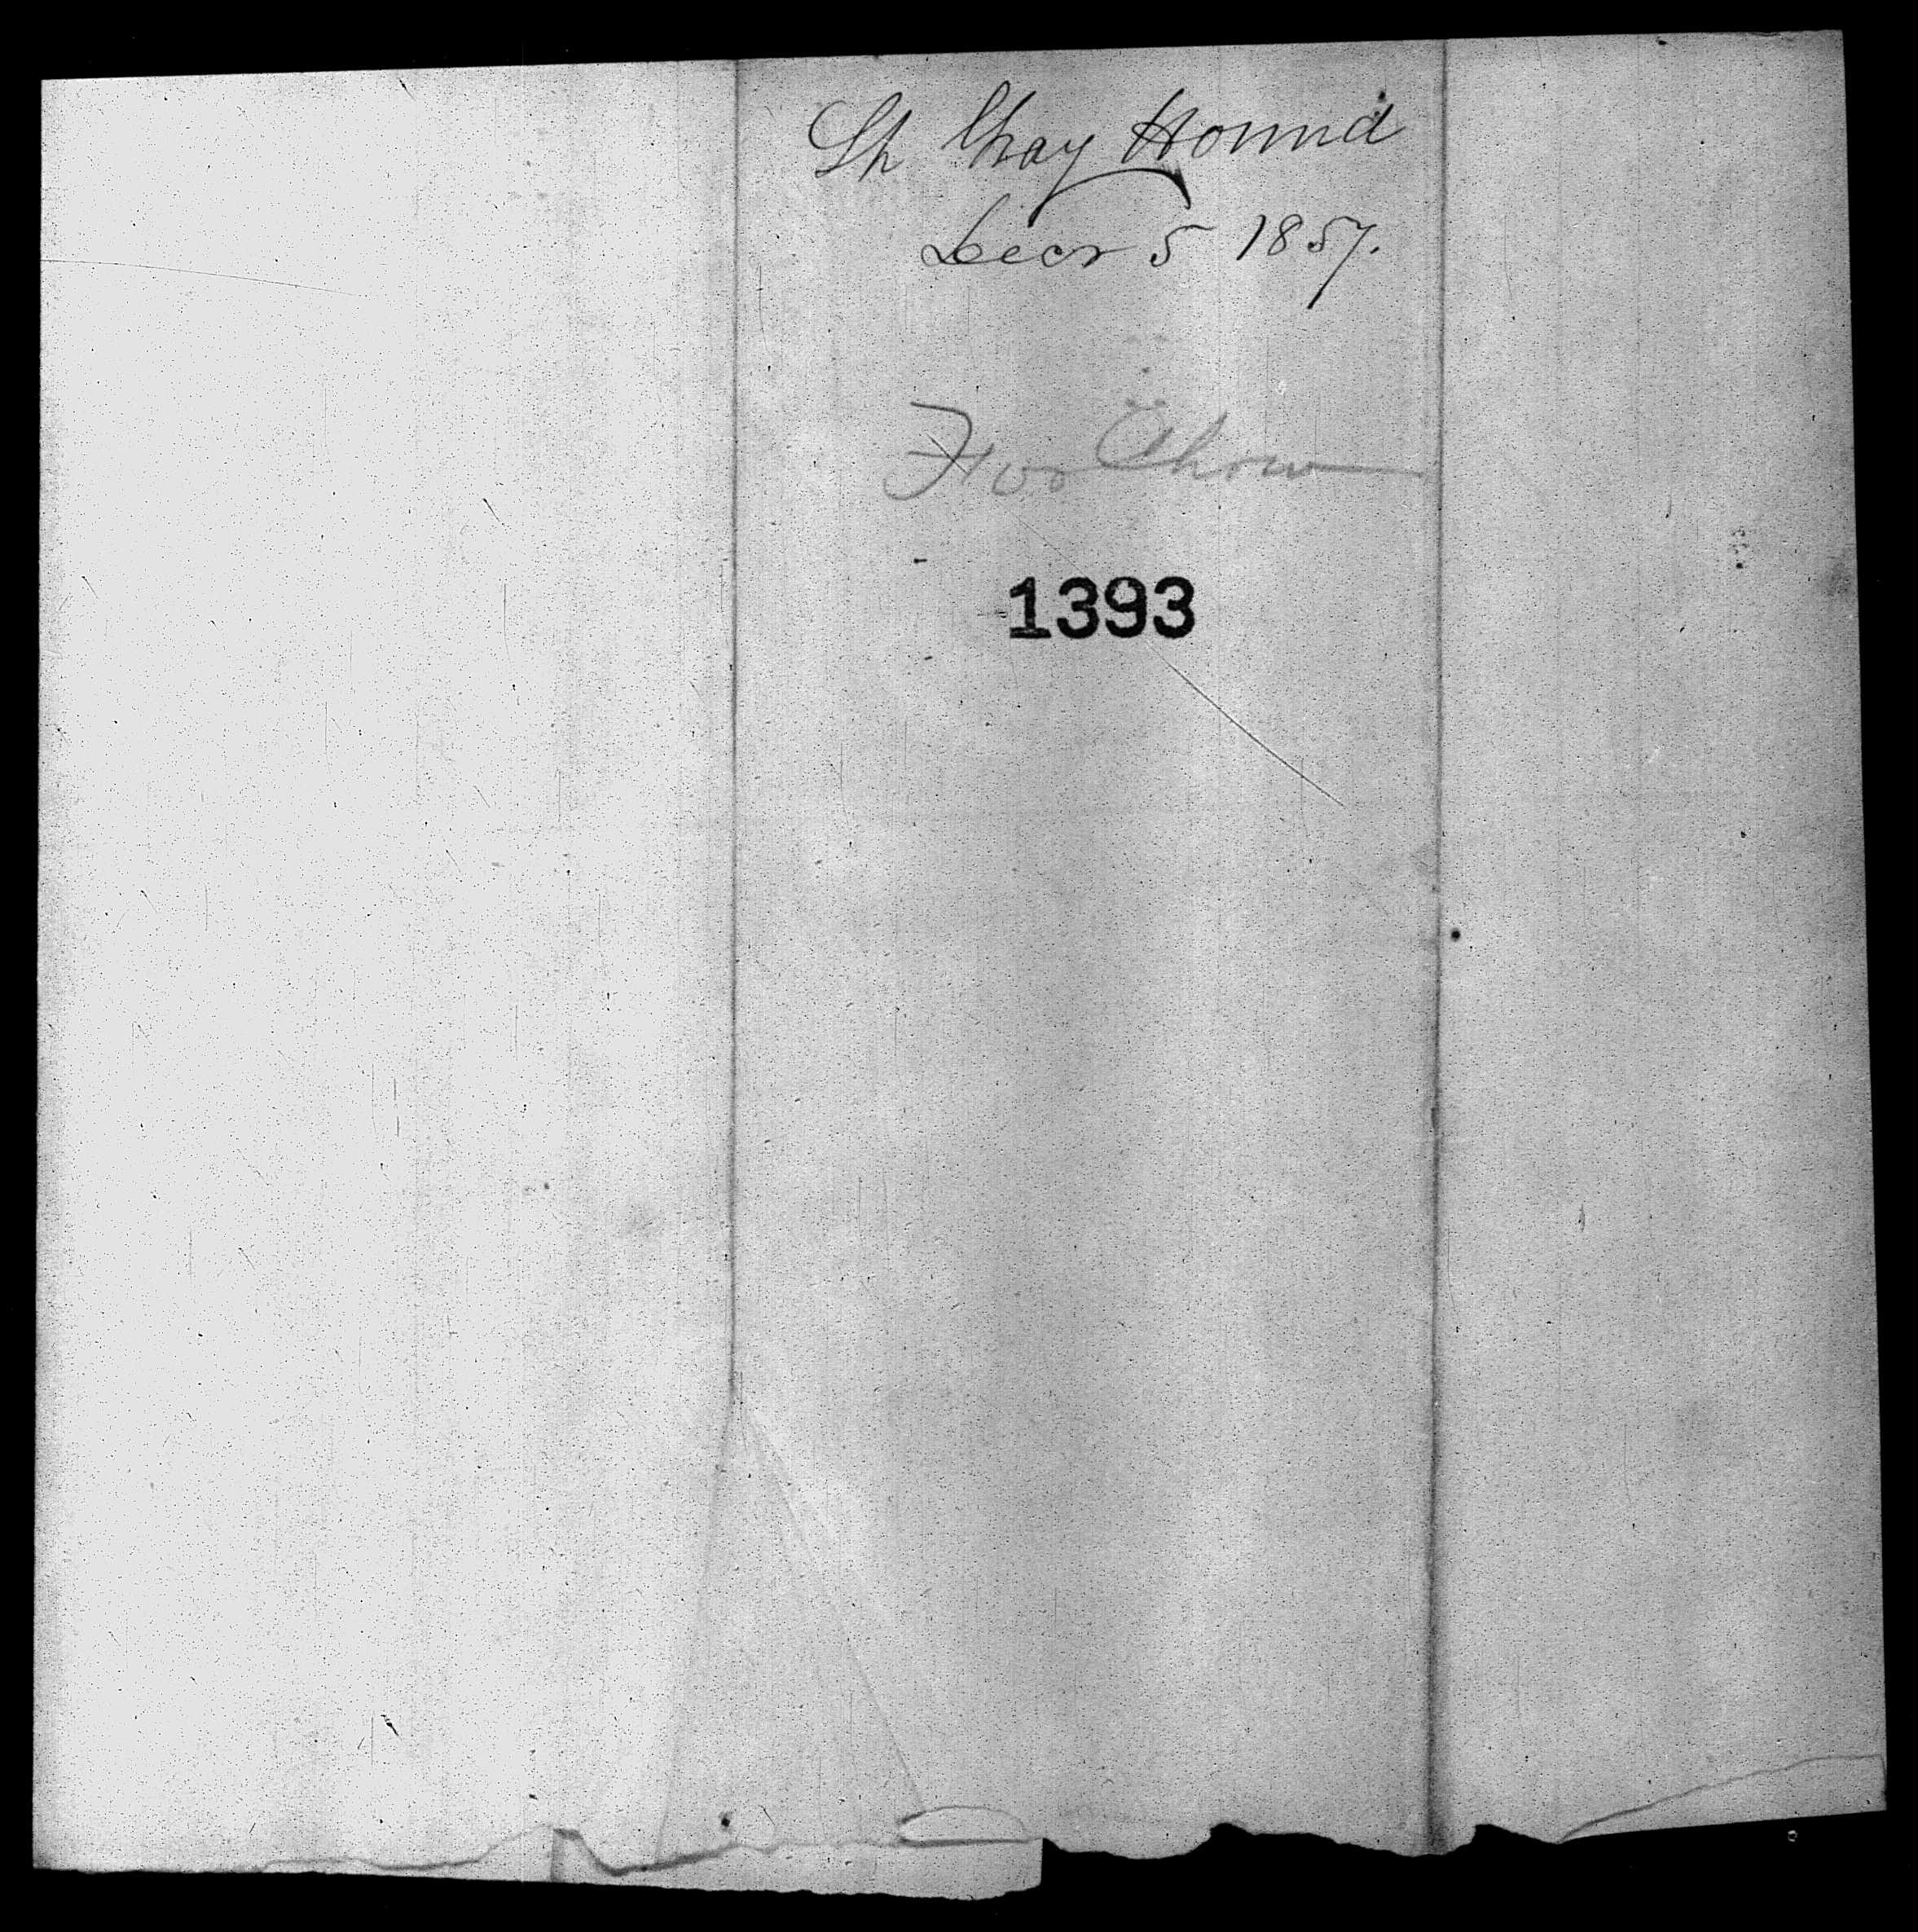 Sh Gray Hound
Decr 5 1857.
Foo Chow
1393